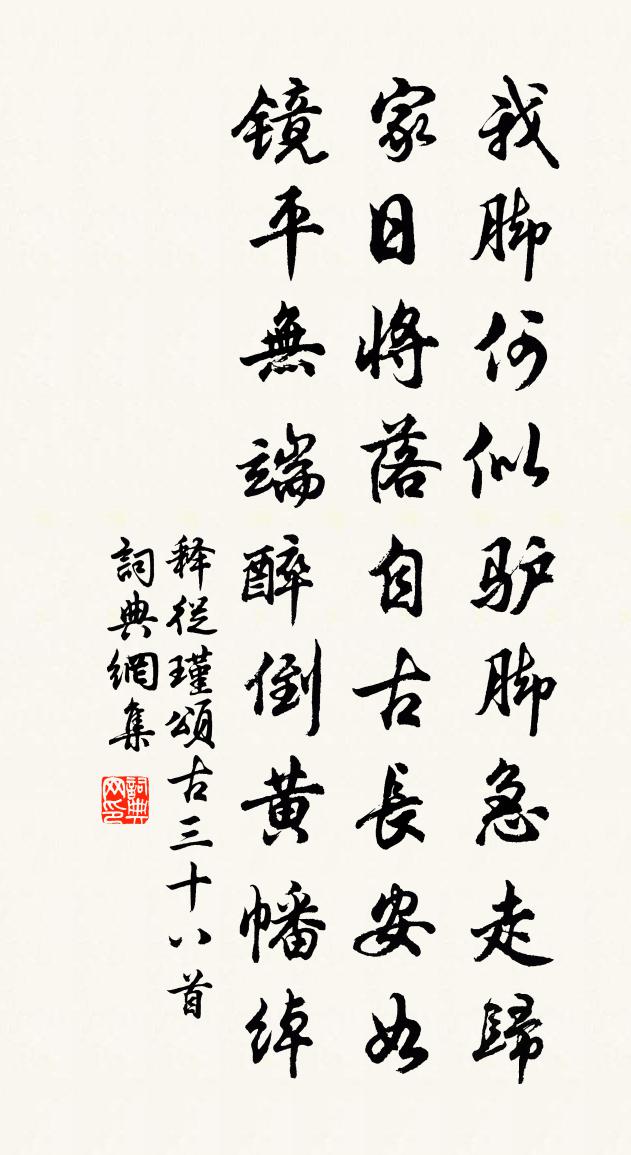 我脚何似驴脚急走歸
家日將落自古長安如
鏡平無端醉倒黄幡綽
释從瑾頌古三十八首
詞典網集
詞典网印